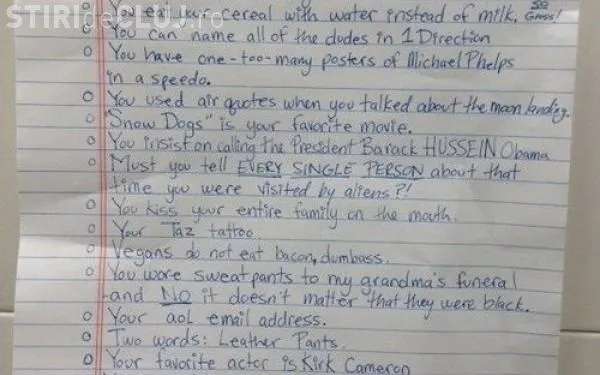 STIRIdeCLUJ.ro
You eat your cereal with water instead of milk. SO Gross!
You can name all of the dudes in 1 Direction
You have one-too-many posters of Michael Phelps
in a speedo.
You used air quotes when you talked about the moon landing.
"Snow Dogs" is your favorite movie.
You insist on calling the President Barack HUSSEIN Obama
Must you tell EVERY SINGLE PERSON about that
time you were visited by aliens?!
You kiss your entire family on the mouth.
Your Taz tattoo
Vegans do not eat bacon, dumbass.
You wore sweatpants to my grandma's funeral
-and NO it doesn't matter that they were black.
Your aol email address.
Two words: Leather Pants.
Your favorite actor is Kirk Cameron